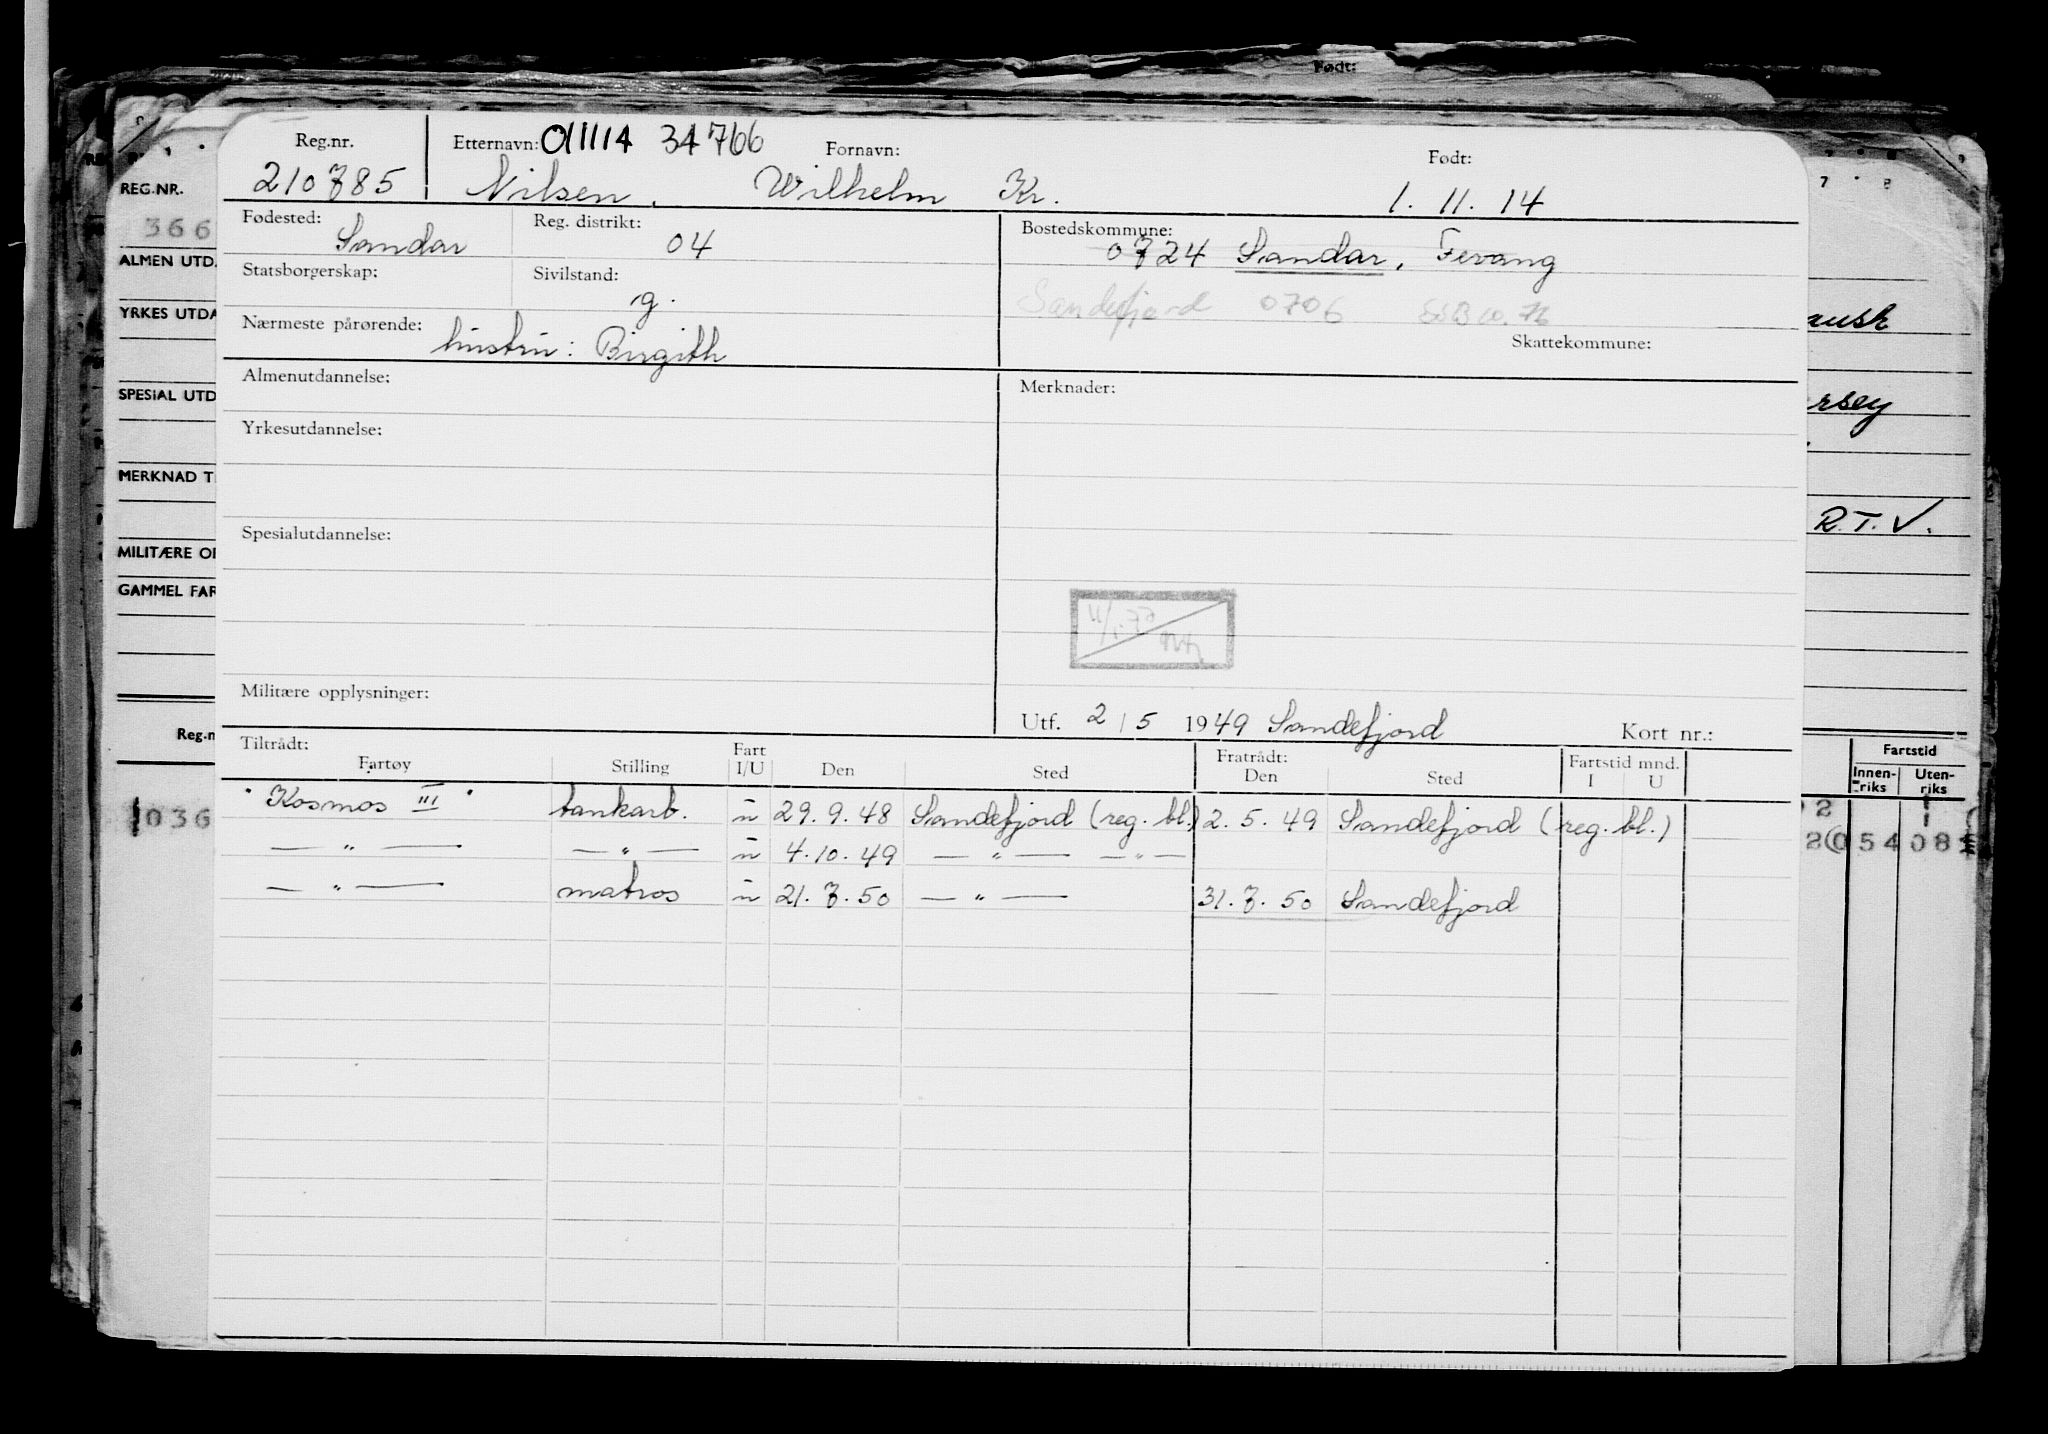 Født:
Reg.nr. Etternavn: 011114 34766 Fornavn: Født:
210785 Nilsen, Wilhelm Kr. 1. 11. 14
REG.NR.
366
Fødested: Sandar Reg. distrikt: 04 Bostedskommune: 0724 Sandar, Fevang
ALMEN UTD.
Statsborgerskap: Sivilstand: g. Sandefjord 0706
YRKES UTDA
Nærmeste pårørende: hustru: Birgith Skattekommune:
Almenutdannelse: Merknader:
SPESIAL UTD
rsey
Yrkesutdannelse:
MERKNAD T
R.T.V.
Spesialutdannelse:
MILITÆRE OP
GAMMEL FAR
Militære opplysninger:
Utf. 2/5 1949 Sandefjord Kort nr.:
Reg.n
Tiltrådt: Fratrådt: Fartstid mnd. Fartstid
Fartøy Stilling Fart I/U Den Sted Den Sted I U Innen-riks Uten-riks
"Kosmos III" tankarb. u 29. 9. 48 Sandefjord (reg. bl.) 2. 5. 49 Sandefjord (reg. bl.)
— " — — " — u 4. 10. 49 — " — — " —
— " — matros u 21. 7. 50 — " — 31. 7. 50 Sandefjord
1036
54 08